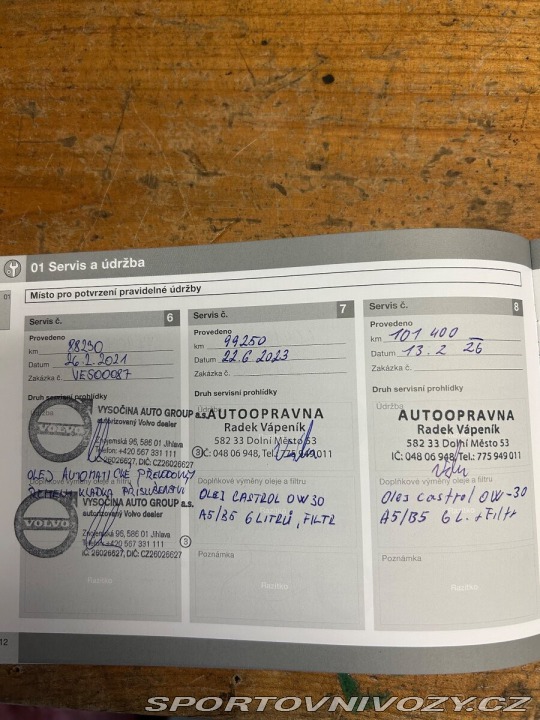 01 Servis a údržba
01
Místo pro potvrzení pravidelné údržby
Servis č. 6
Provedeno
km 88290
Datum 26.2.2021
Zakázka č. VES00087
Druh servisní prohlídky
Údržba
VYSOČINA AUTO GROUP a.s.
autorizovaný Volvo dealer
VOLVO
Znojemská 95, 586 01 Jihlava
Telefon: +420 567 331 111
IČ: 26026627, DIČ: CZ26026627
OLEJ AUTOMATICKÉ PŘEVODOVKY
Doplňkové výměny oleje a filtru
ŘEMEN KLADKA PŘÍSLUŠENSTVÍ
VYSOČINA AUTO GROUP a.s.
autorizovaný Volvo dealer
VOLVO
Znojemská 95, 586 01 Jihlava
Telefon: +420 567 331 111
IČ: 26026627, DIČ: CZ26026627
3
Razítko
Servis č. 7
Provedeno
km 99250
Datum 22.6.2023
Zakázka č.
Druh servisní prohlídky
AUTOOPRAVNA
Radek Vápeník
582 33 Dolní Město 53
IČ: 048 06 948, Tel.: 775 949 011
3
Doplňkové výměny oleje a filtru
OLEJ CASTROL 0W30
A5/B5 6 LITRŮ, FILTR
Poznámka
Razítko
Servis č. 8
Provedeno
km 101 400
Datum 13.2 26
Zakázka č.
Druh servisní prohlídky
Údržba
AUTOOPRAVNA
Radek Vápeník
582 33 Dolní Město 53
IČ: 048 06 948, Tel.: 775 949 011
Doplňkové výměny oleje a filtru
Olej castrol 0W-30
A5/B5 6 L. + Filtr
Poznámka
Razítko
12
SPORTOVNIVOZY.CZ